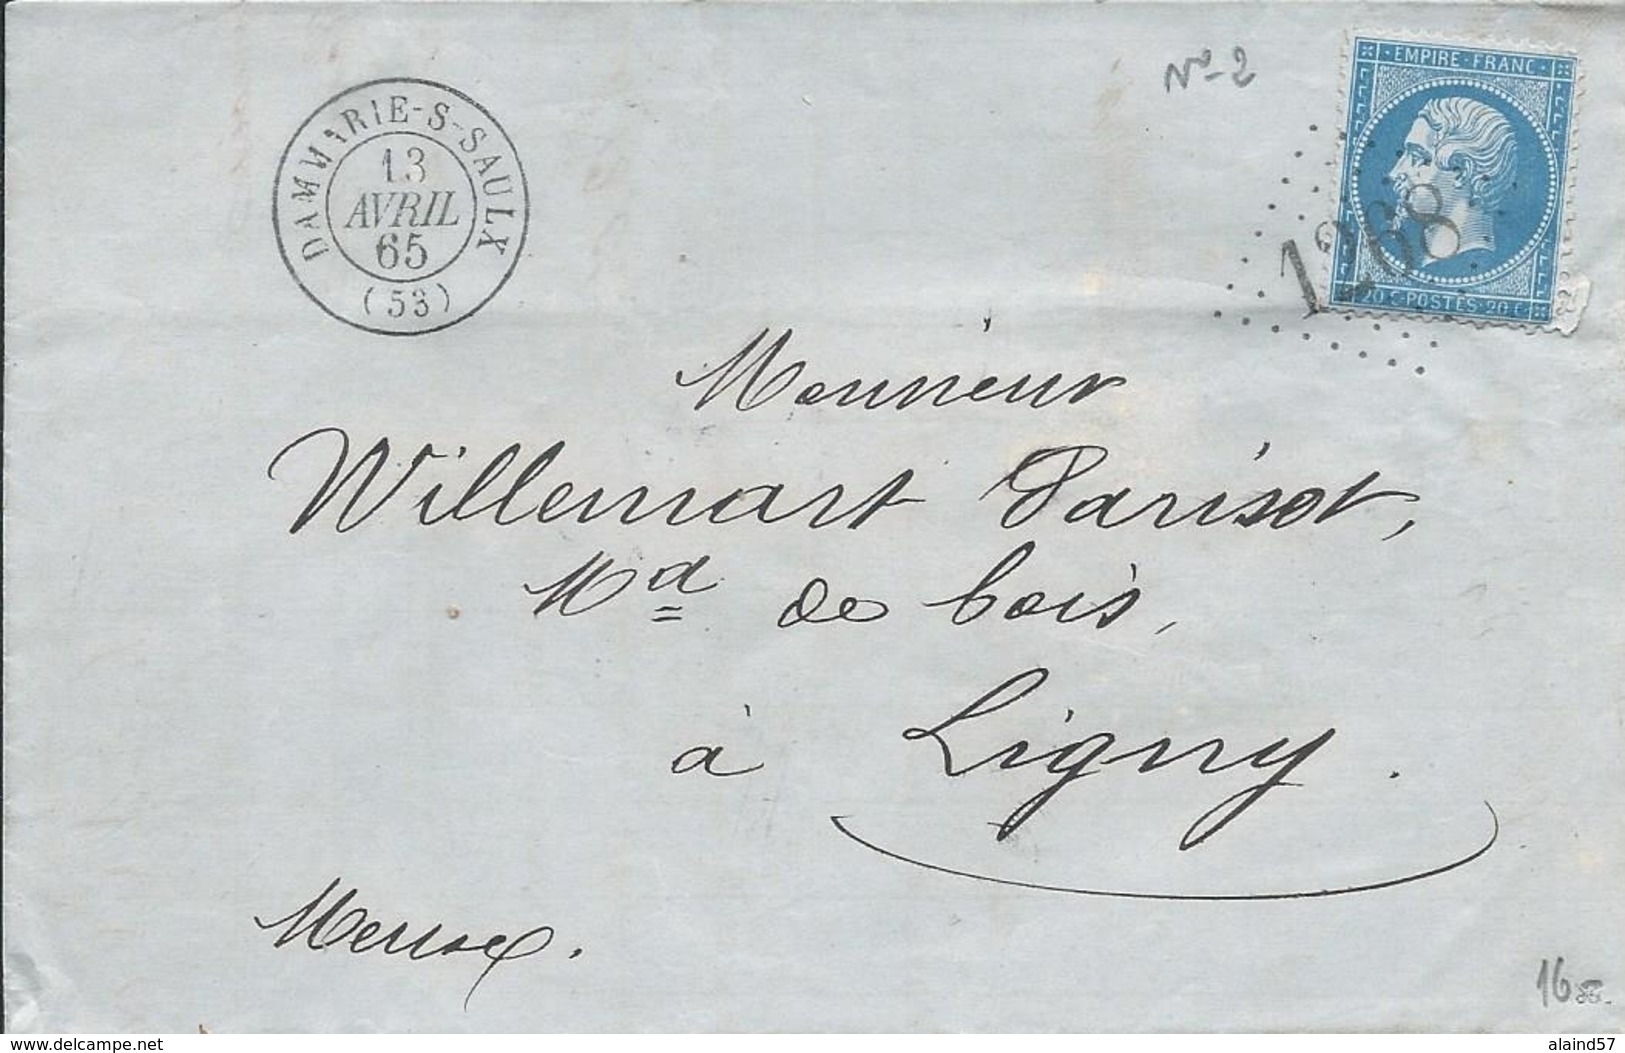 N°-2
EMPIRE·FRANC·
DAMMARIE-S-SAULX
13
AVRIL
65
(53)
1268
20 C·POSTES·20 C
Monsieur
Willemart Parisot,
Md de bois,
à Ligny.
Meuse.
16
www.delcampe.net
alaind57